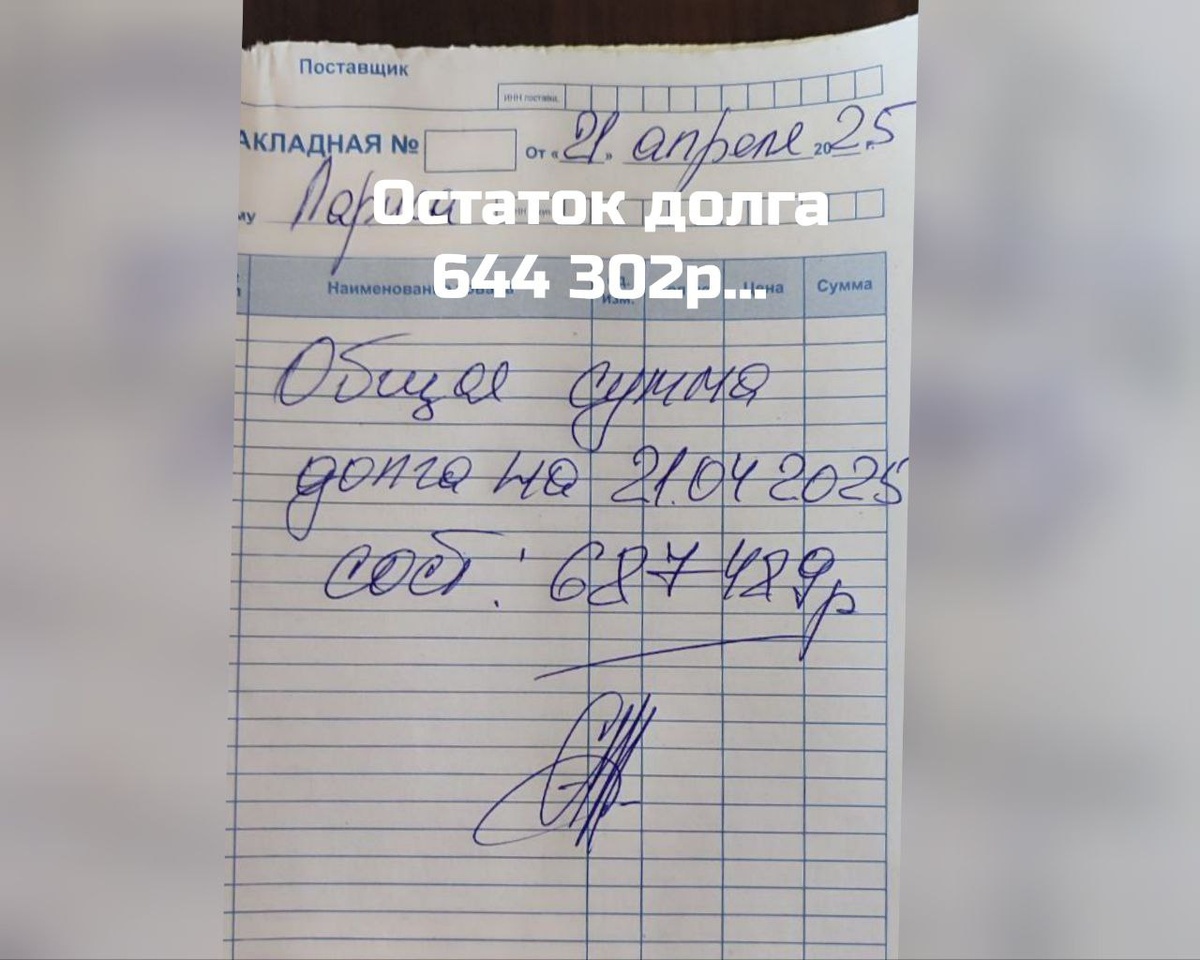 Поставщик
ИНН поставщ.
АКЛАДНАЯ № От «21» апреля 2025 г.
му
Остаток долга
644 302р...
Наименование товара изм. Цена Сумма
Общая сумма
долга на 21.04 2025
сост: 687 489р